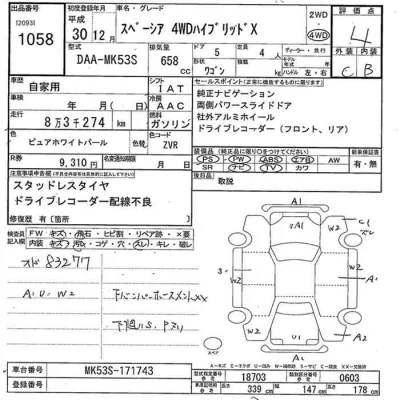 出品番号 初度登録年月 車名・グレード 評価点
I20931
1058
平成 30年12月 スペーシア 4WDハイブリッドX 2WD・4WD 4
型式 排気量 ドア 定員 ディーラー・並行 外装 内装
DAA-MK53S 658cc 5 4人 C B
形状 ワゴン ハンドル 左・右
車歴 シフト セールスポイント
自家用 IAT 純正ナビゲーション
車検 冷房 両側パワースライドドア
年 月( 日) AAC 社外アルミホイール
走行 燃料 ドライブレコーダー(フロント、リア)
8万3千274km ガソリン
色 カラーNo.
ピュアホワイトパール ZVR
R券 9,310円 名変期限 月 日
装備品 新車保証書
PS・PW・ABS・エアB・AW 有・無
SR・ナビ・TV・カワ
注意事項申告欄 後日 取説
スタッドレスタイヤ
ドライブレコーダー配線不良
修復歴 有[箇所 ]
検査員記入欄 FW キズ・飛石・ヒビ割・リペア跡・×要
内装 キズ・汚れ・コゲ・穴・スレ・キレ・破レ
オド 83277
A.U.W2
下廻りS.Pスリ
A1
C1
スレ
W2
A1
S
U1
W2
W2
A1
スペア
車台番号 MK53S-171743
登録番号
型式指定番号 18703 類別区分番号 0603
長さ 339cm 幅 147cm 高さ 178cm